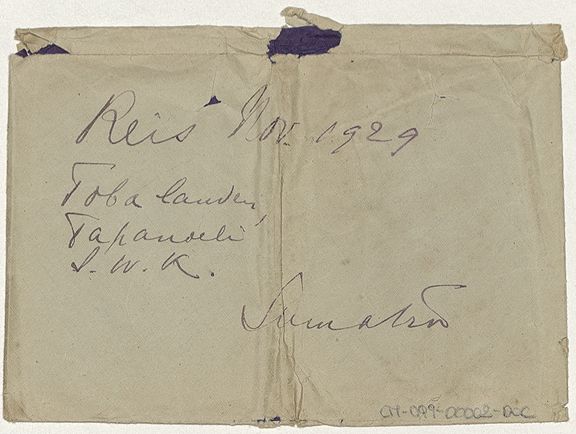 Reis Nov. 1929
Toba landen,
Tapanoeli
S.W.K.
Sumatra
CM-CA9-00002-DOC